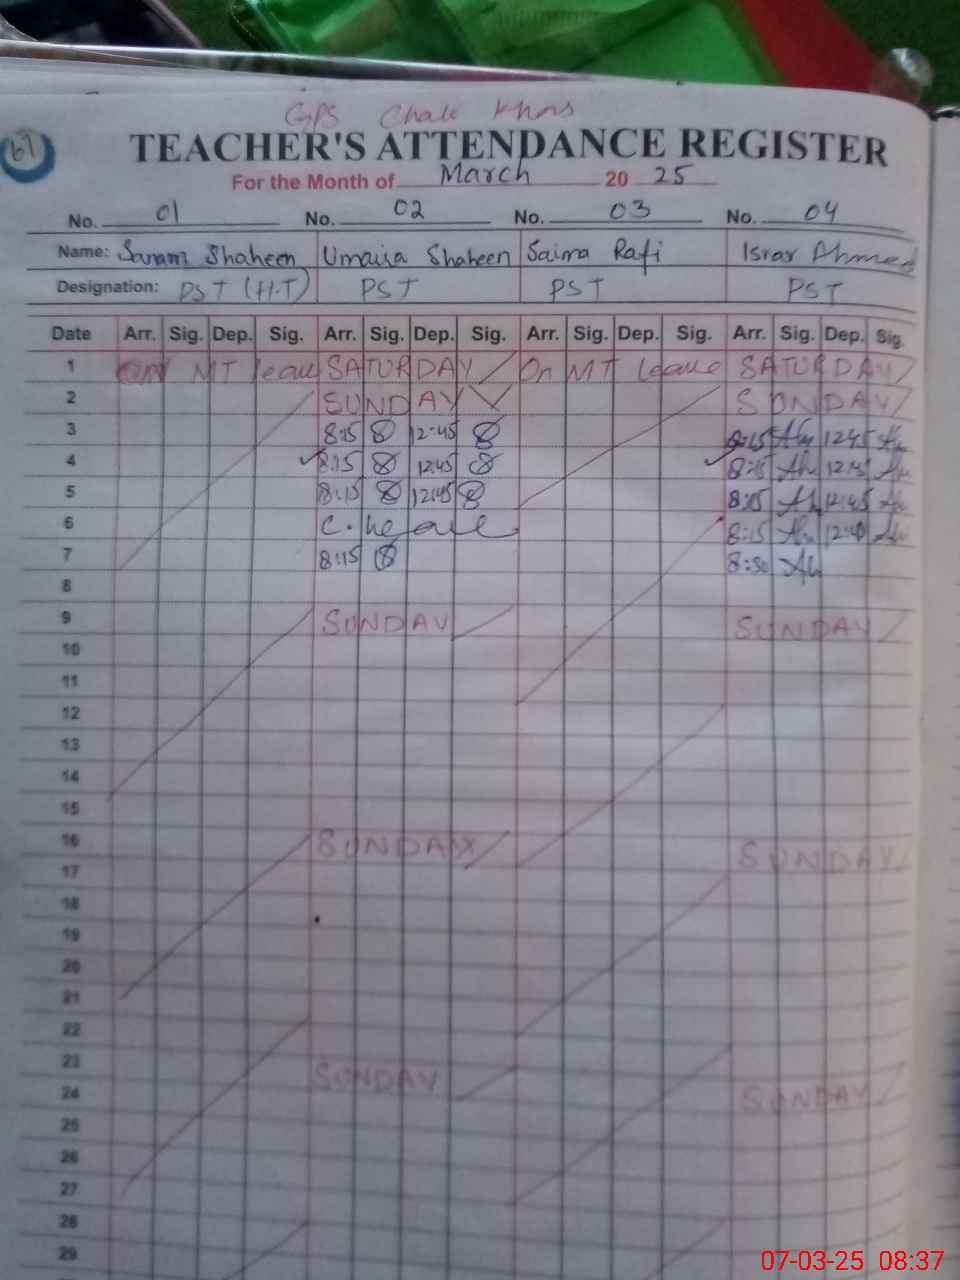 61
GPS Chak Khas
TEACHER'S ATTENDANCE REGISTER
For the Month of March 2025
No. 01 No. 02 No. 03 No. 04
Name: Sanam Shaheen Umaisa Shaheen Saima Rafi Israr Ahmed
Designation: PST (H.T) PST PST PST
Date Arr. Sig. Dep. Sig. Arr. Sig. Dep. Sig. Arr. Sig. Dep. Sig. Arr. Sig. Dep. Sig.
1 On MT leave SATURDAY On MT leave SATURDAY
2 SUNDAY SUNDAY
3 8:15 12:45 8:15 12:45
4 8:15 12:45 8:15 12:45
5 8:15 12:45 8:15 12:45
6 C. leave 8:15 12:40
7 8:15 8:30
8
9 SUNDAY SUNDAY
10
11
12
13
14
15
16 SUNDAY SUNDAY
17
18
19
20
21
22
23 SUNDAY SUNDAY
24
25
26
27
28
29
07-03-25 08:37